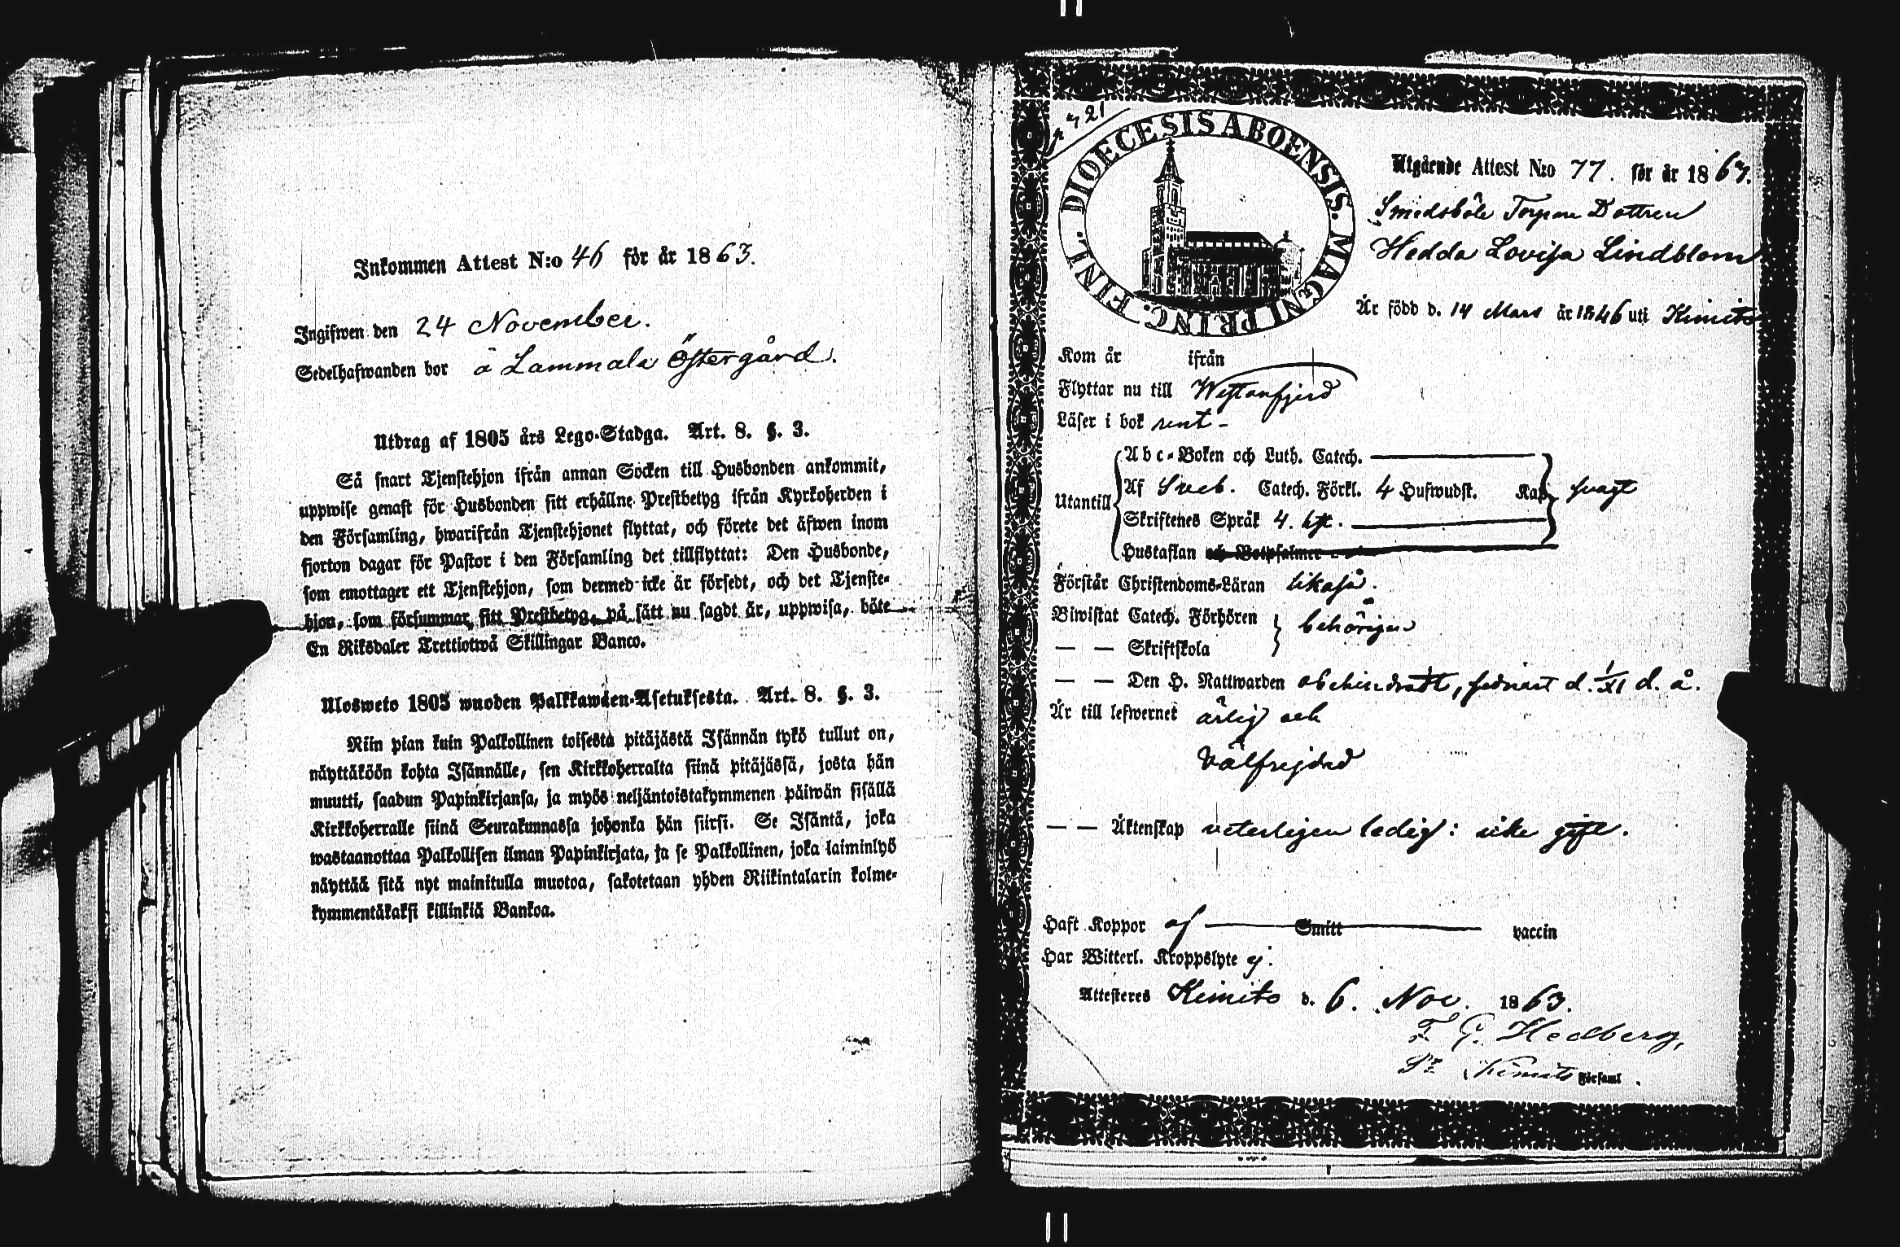 Inkommen Attest N:o 46 för år 1863.
Ingifwen den 24 November.
Sedelhafwanden bor å Lammala Östergård.
Utdrag af 1805 års Lego-Stadga. Art. 8. §. 3.
Så snart Tjenstehjon ifrån annan Socken till Husbonden ankommit,
uppwise genast för Husbonden sitt erhållne Prestbetyg ifrån Kyrkoherden i
den Församling, hwarifrån Tjenstehjonet flyttat, och förete det äfwen inom
fjorton dagar för Pastor i den Församling det tillflyttat: Den Husbonde,
som emottager ett Tjenstehjon, som dermed icke är försedt, och det Tjenste-
hjon, som försummar sitt Prestbetyg, på sätt nu sagdt är, uppwisa, böte
En Riksdaler Trettiotwå Skillingar Banco.
Ulosweto 1805 wuoden Palkkawäen-Asetuksesta. Art. 8. §. 3.
Niin pian kuin Palkollinen toisesta pitäjästä Isännän tykö tullut on,
näyttäköön kohta Isännälle, sen Kirkkoherralta siinä pitäjässä, josta hän
muutti, saadun Papinkirjansa, ja myös neljäntoistakymmenen päiwän sisällä
Kirkkoherralle siinä Seurakunnassa johonka hän siirsi. Se Isäntä, joka
wastaanottaa Palkollisen ilman Papinkirjata, ja se Palkollinen, joka laiminlyö
näyttää sitä nyt mainitulla muotoa, sakotetaan yhden Riikintalarin kolme-
kymmentäkaksi killinkiä Bankoa.
421
DIOECESIS ABOENSIS. MAGNI PRINC. FINL.
Utgående Attest N:o 77. för år 1863.
Smedsböle Torpare Dottren
Hedda Lovisa Lindblom
Är född d. 14 Mars år 1846 uti Kimito
Kom år ifrån
Flyttar nu till Westanfjerd
Läser i bok rent -
Abc-Boken och Luth. Catech.
Utantill Af Sveb. Catech. Förkl. 4 Hufwudst. Kap. svagt
Skriftenes Språk 4. hst.
Hustaflan och Botpsalmer
Förstår Christendoms-Läran likaså.
Biwistat Catech. Förhören behörigen
— — Skriftskola
— — Den H. Nattwarden obehindradt, sednast d. 1/XI d. å.
Är till lefwernet ärlig och
välfrejdad
— — Äktenskap veterligen ledig: icke gift.
Haft Koppor af Smitt vaccin
Har Witterl. Kroppslyte ej.
Attesteres Kimito d. 6. Nov. 1863.
F G. Hedberg,
Kimito Församl.